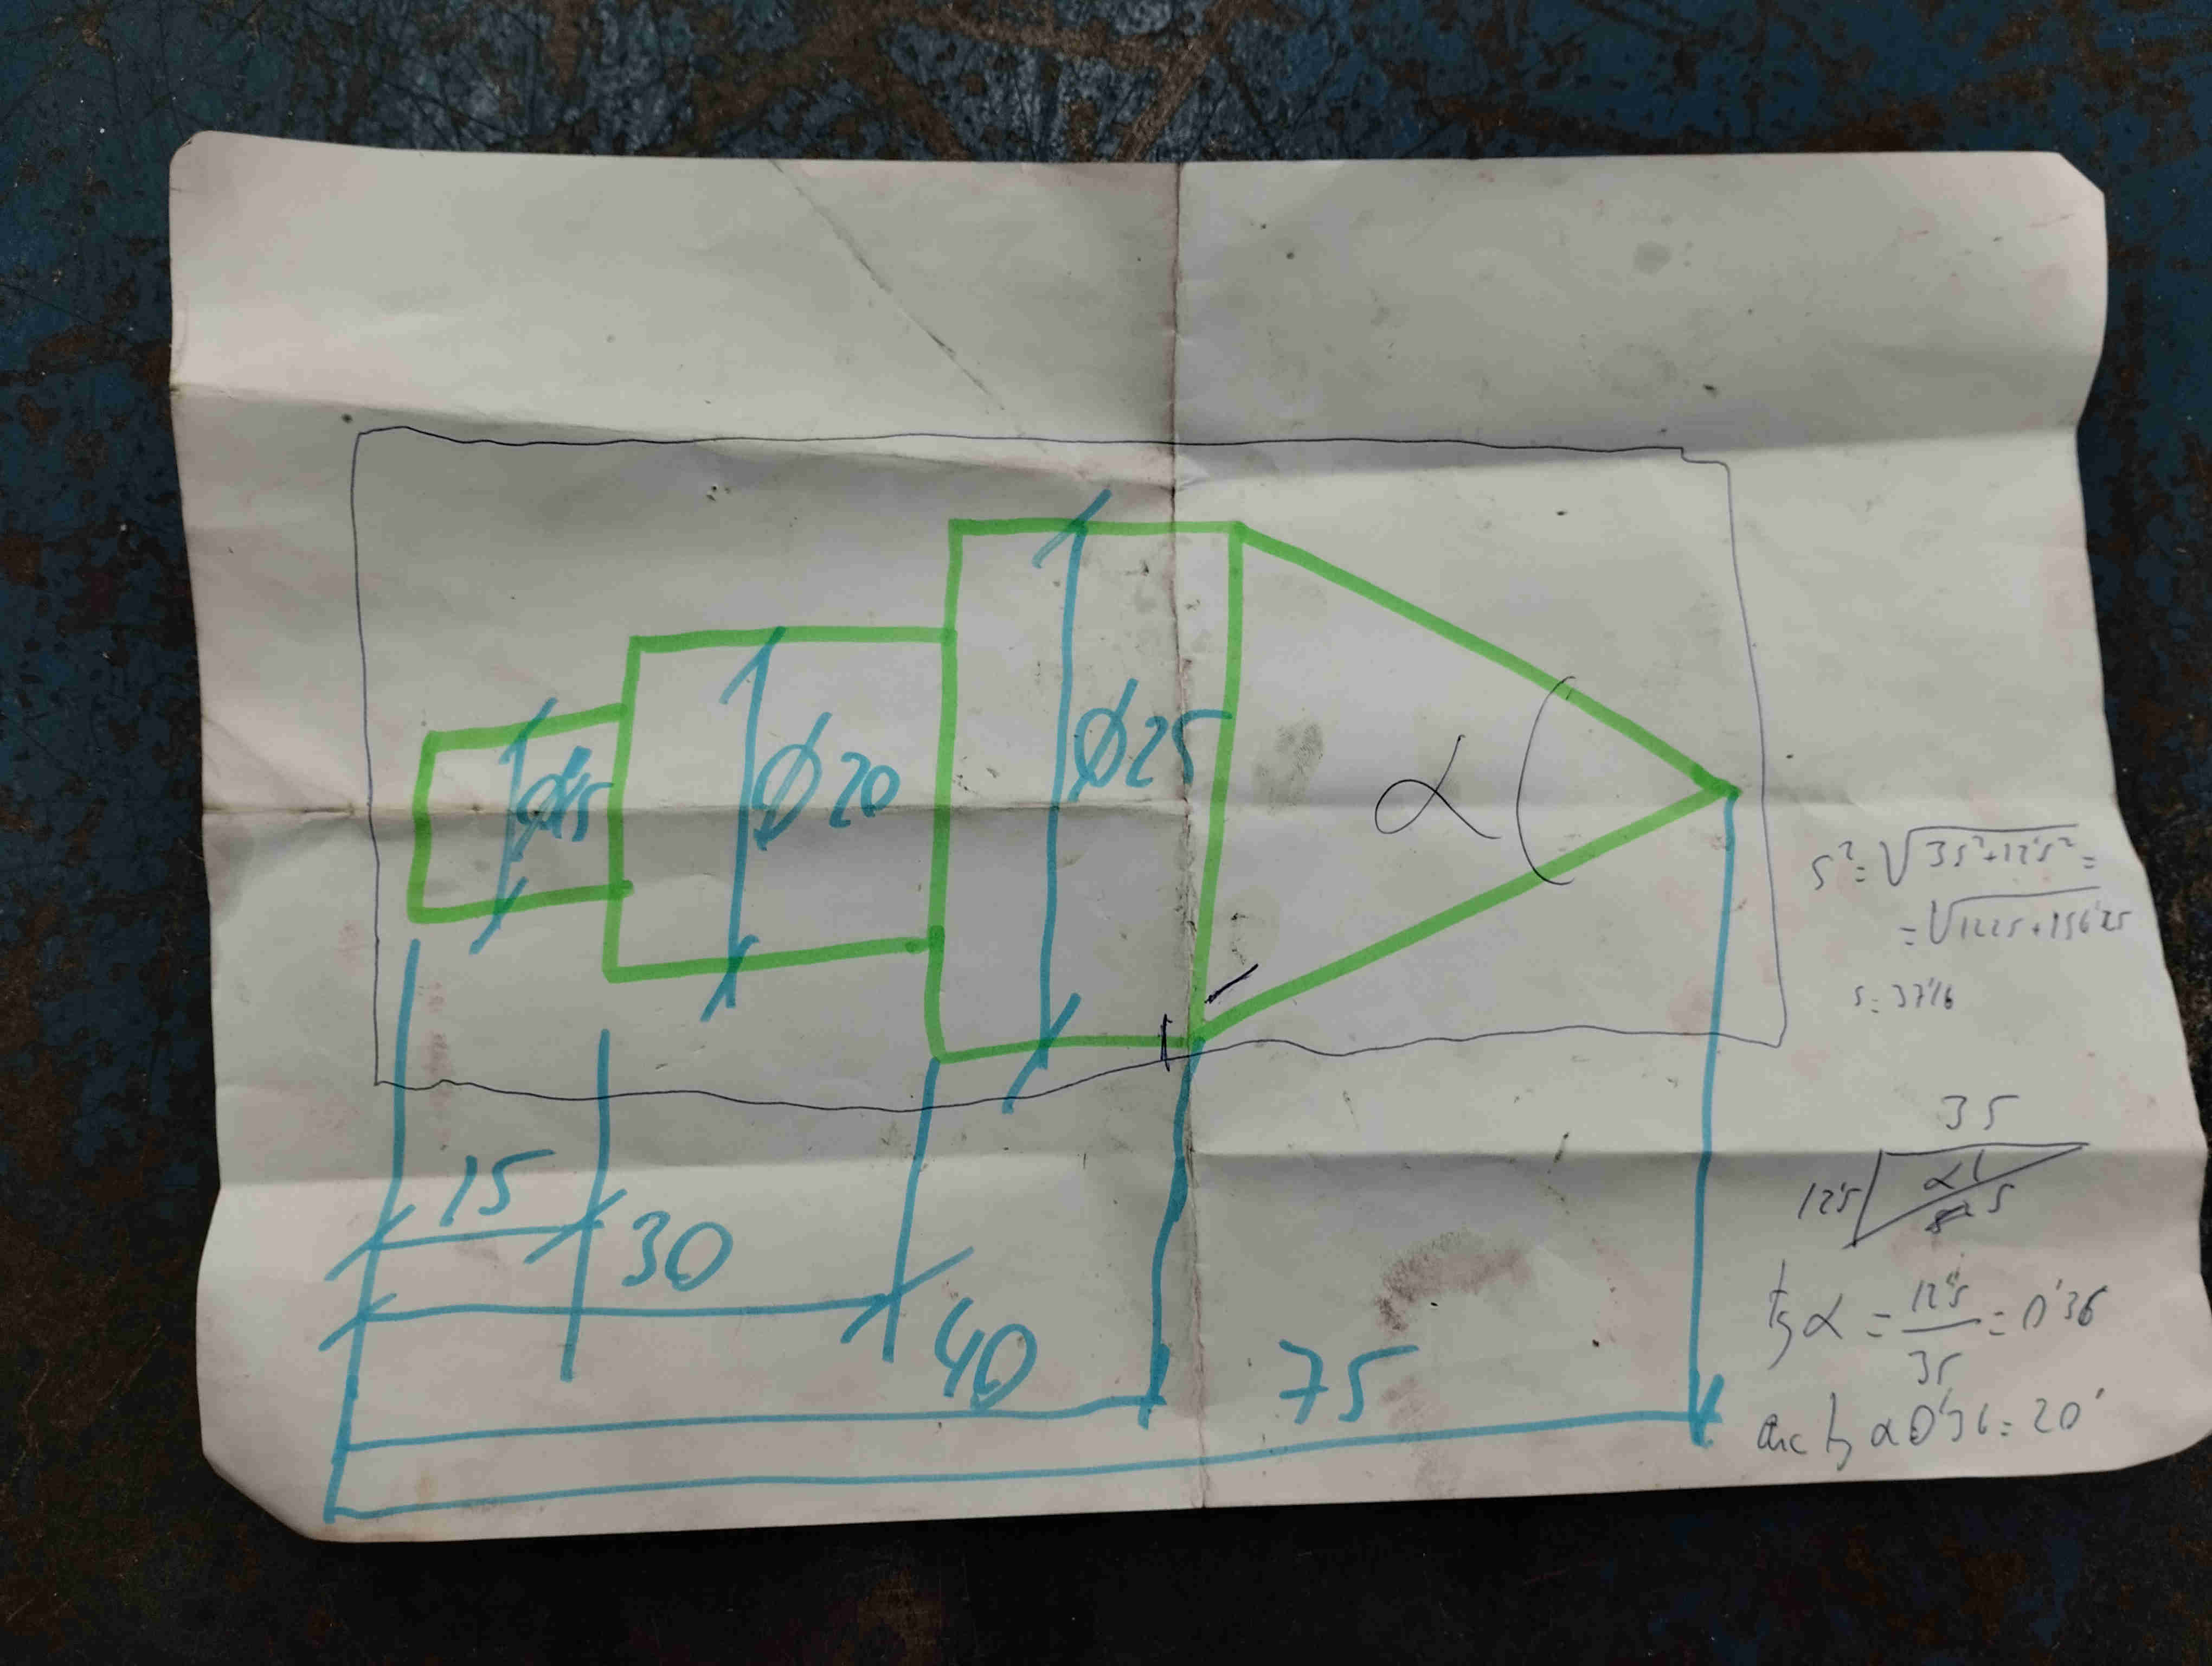 ø15
ø20
ø25
α
15
30
40
75
s² = √35²+12'5² =
= √1225+156'25
s = 37'16
35
12'5
α1
s
tg α = 12'5 / 35 = 0'36
arc tg α 0'36 = 20'